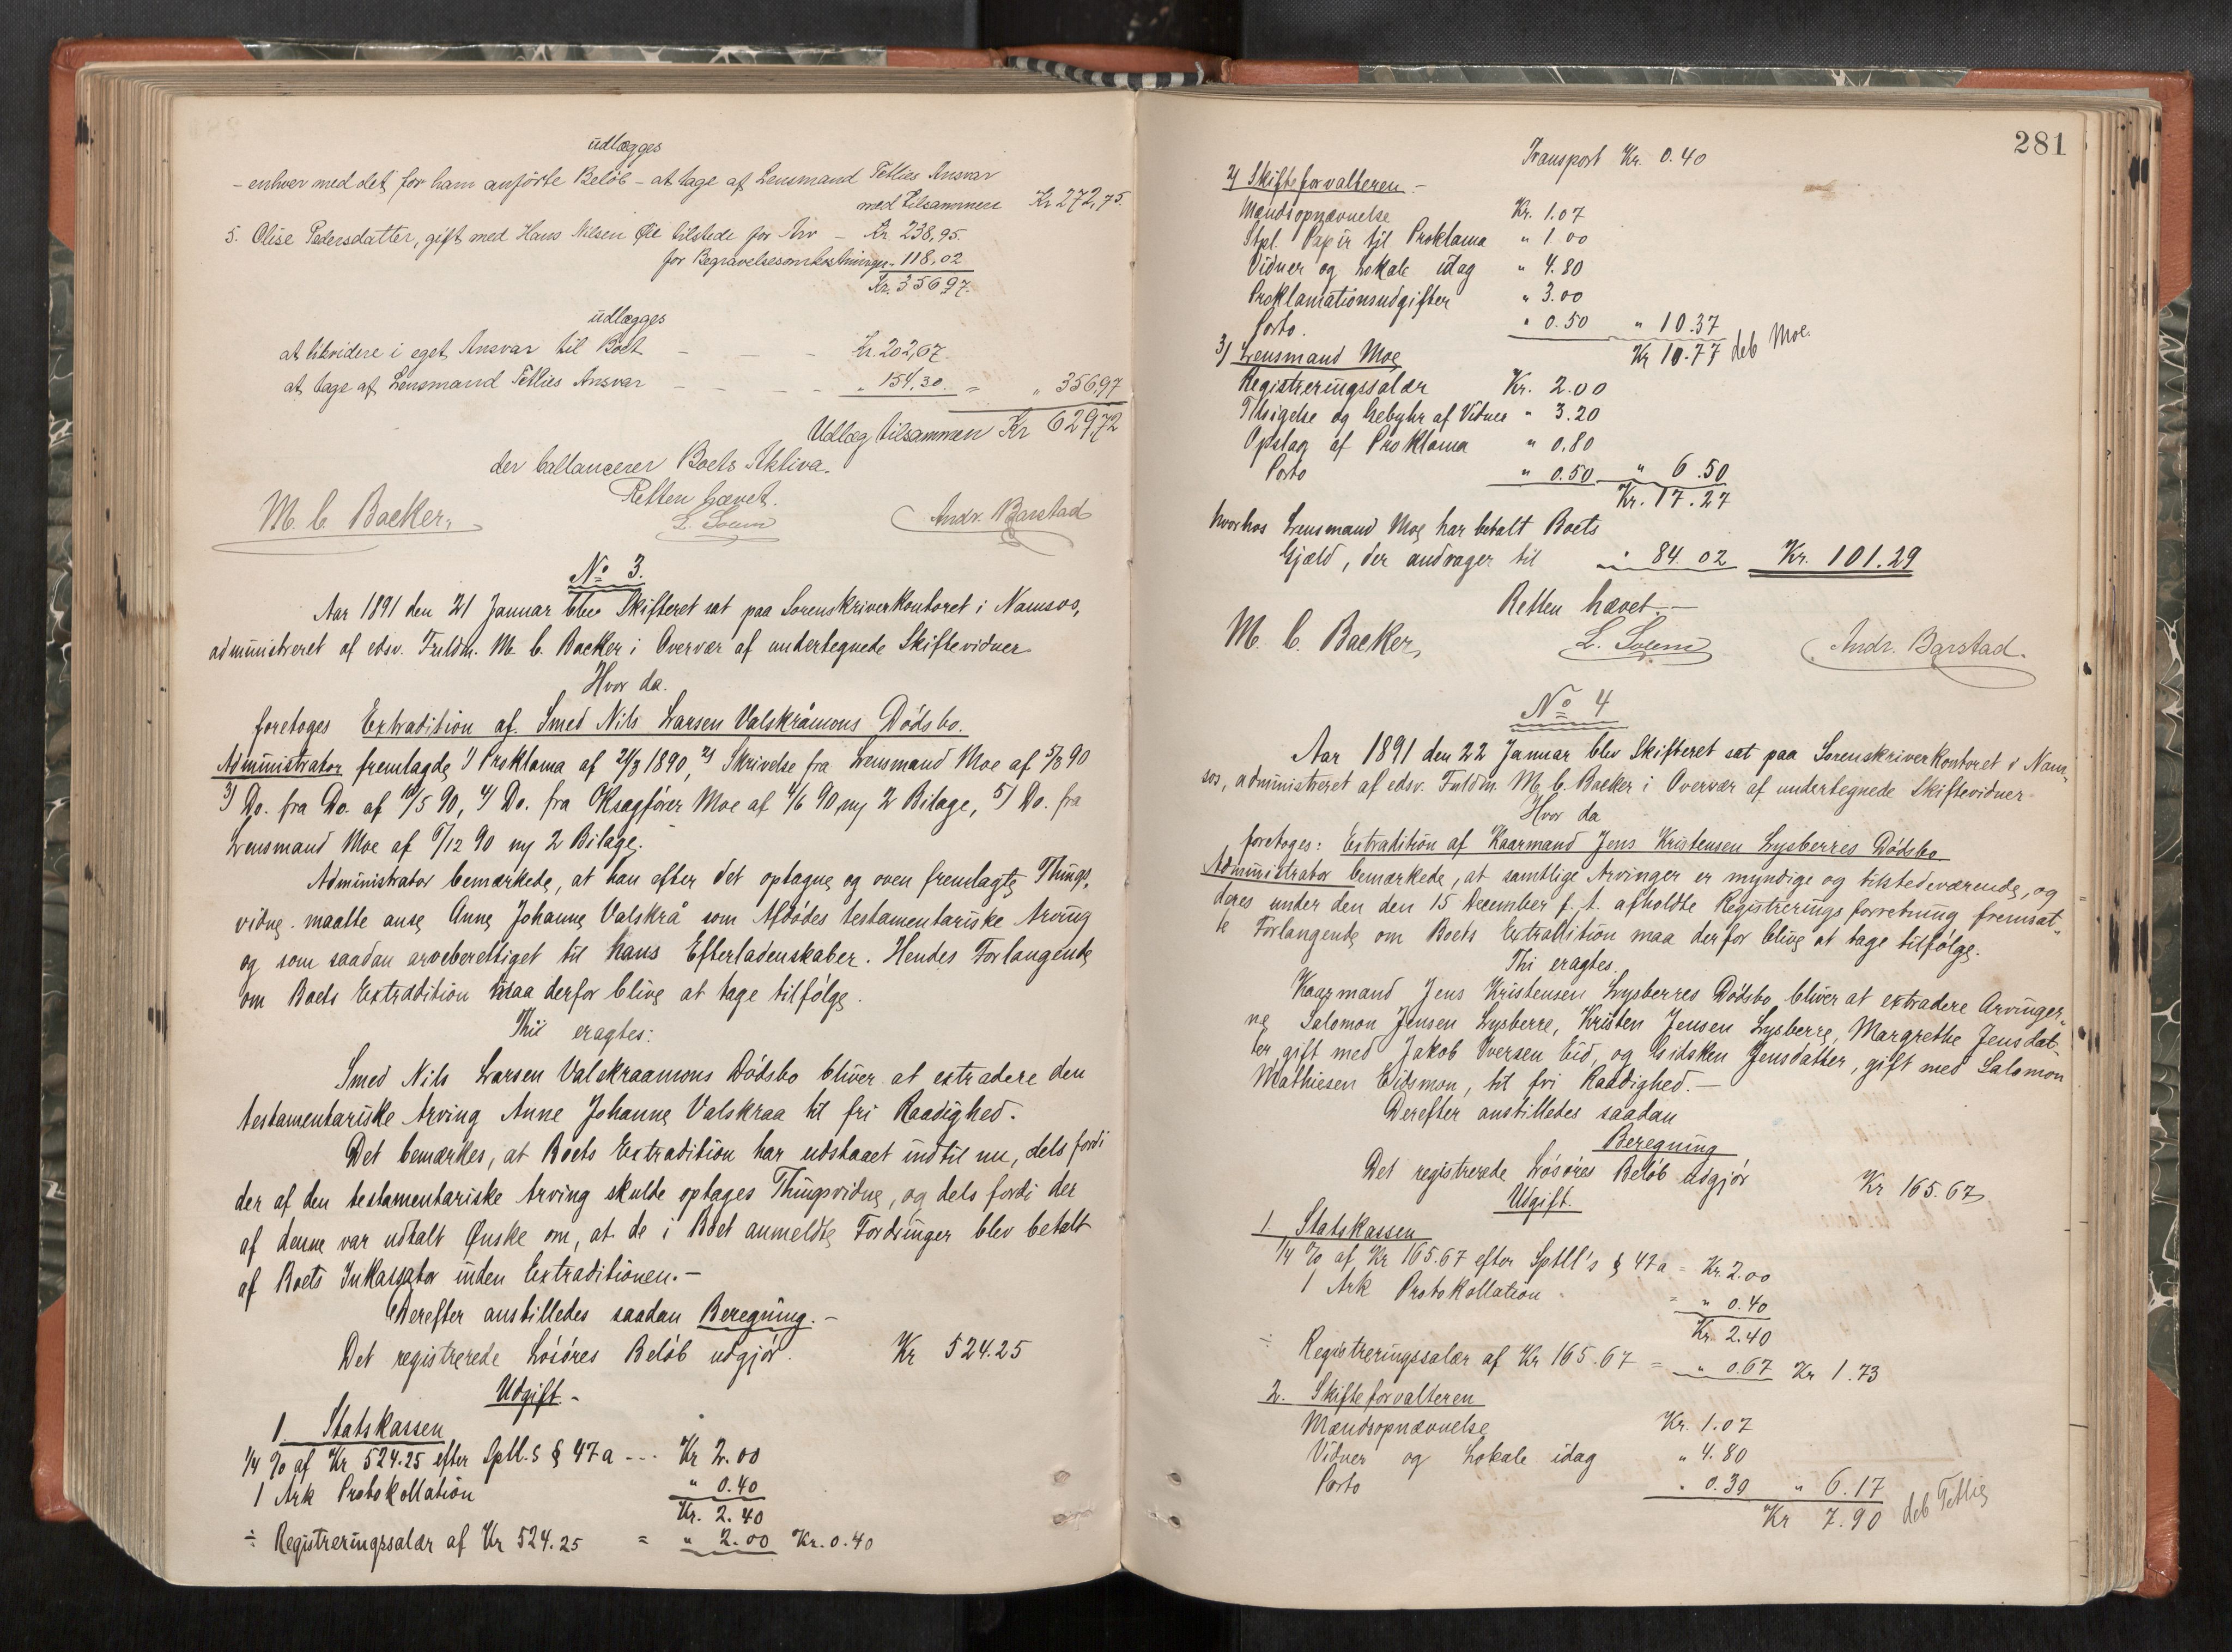 udlægges
- enhver med det for ham anförte Belöb - at tage af Lensmand Tetlies Ansvar
med tilsammen Kr 272,75.
5. Olise Pedersdatter, gift med Hans Nilsen Öie tilstede for Arv - Kr. 238,95.
for Begravelsesomkostninger - 118,02
Kr. 356,97.
udlægges
at likvidere i eget Ansvar til Boet - - Kr. 202,67.
at tage af Lensmand Tetlies Ansvar - - - - " 154,30. = " 356,97
Udlæg tilsammen Kr 629,72
der ballancerer Boets Aktiva.
Retten hævet.
M. C. Backer, L. Solem Andr. Barstad
No 3.
Aar 1891 den 21 Januar blev Skifteret sat paa Sorenskriverkontoret i Namsos,
administreret af edsv. Fuldm. M. C. Backer i Overvær af undertegnede Skiftevidner.
Hvor da.
foretoges Extradition af Smed Nils Larsen Valskråmons Dödsbo.
Administrator fremlagde 1) Proklama af 21/3 1890, 2) Skrivelse fra Lensmand Moe af 5/8 90
3) Do. fra Do. af 19/5 90, 4) Do. fra Oksagförer Moe af 4/6 90 m 2 Bilage, 5) Do. fra
Lensmand Moe af 6/12 90 m 2 Bilage.
Administrator bemærkede, at han efter det optagne og oven fremlagte Things-
vidne maatte anse Anne Johanne Valskrå som Afdödes testamentariske Arving
og som saadan arveberettiget til hans Efterladenskaber. Hendes Forlangende
om Boets Extradition maa derfor blive at tage tilfölge.
Thi eragtes:
Smed Nils Larsen Valskraamons Dödsbo bliver at extradere den
testamentariske Arving Anne Johanne Valskraa til fri Raadighed.
Det bemærkes, at Boets Extradition har udstaaet indtil nu, dels fordi
der af den testamentariske Arving skulde optages Thingsvidne, og dels fordi der
af denne var udtalt Önske om, at de i Boet anmeldte Fordringer blev betalt
af Boets Inkassator inden Extraditionen. -
Derefter anstilledes saadan Beregning. -
Det registrerede Lösöres Belöb udgjör. Kr 524.25
Udgift -
1. Statskassen
1/4 % af Kr 524.25 efter Sptl.s § 47a - - - Kr 2.00
1 Ark Protokollation " 0.40
Kr. 2.40
÷ Registreringssalær af Kr 524.25 = " 2.00 Kr. 0.40
281
Transport Kr. 0.40
2) Skifteforvalteren. -
Mandsopnævnelse Kr. 1.07
Stpl. Papir til Proklama " 1.00
Vidner og Lokale idag " 4.80
Proklamationsudgifter " 3.00
Porto. " 0.50 " 10.37
Kr 10.77 deb Moe.
3) Lensmand Moe
Registreringssalær Kr. 2.00
Tilsigelse og Gebyhr af Vidner " 3.20
Opslag af Proklama " 0.80
Porto " 0.50 " 6.50
Kr. 17.27
hvorhos Lensmand Moe har betalt Boets
Gjæld, der andrager til " 84.02 Kr. 101.29
Retten hævet. -
M. C. Backer, L. Solem Andr. Barstad.
No 4
Aar 1891 den 22 Januar blev Skifteret sat paa Sorenskriverkontoret i Nam-
sos, administreret af edsv. Fuldm. M. C. Backer i Overvær af undertegnede Skiftevidner
Hvor da
foretoges: Extradition af Kaarmand Jens Kristensen Lysberres Dödsbo
Administrator bemærkede, at samtlige Arvinger er myndige og tilstedeværende, og
deres under den den 15 December f. A. afholdte Registreringsforretning fremsat-
te Forlangende om Boets Extradition maa derfor blive at tage tilfölge.
Thi eragtes.
Kaarmand Jens Kristensen Lysberres Dödsbo bliver at extradere Arvinger-
ne Salomon Jensen Lysberre, Kristen Jensen Lysberre, Margrethe Jensdat-
ter, gift med Jakob Iversen Eid, og Gidsken Jensdatter, gift med Salomon
Mathiesen Eidsmon, til fri Raadighed. -
Derefter anstilledes saadan
Beregning
Det registrerede Lösöres Belöb udgjör Kr 165.67
Udgift.
1. Statskassen
1/4 % af Kr 165.67 efter Sptll's § 47a = Kr. 2.00
1 Ark Protokollation = " 0.40
Kr. 2.40
÷ Registreringssalær af Kr 165.67 = " 0.67 Kr 1.73
2. Skifteforvalteren
Mandsopnævnelse Kr. 1.07
Vidner og Lokale idag " 4.80
Porto " 0.30 " 6.17
Kr 7.90 deb Tetlie